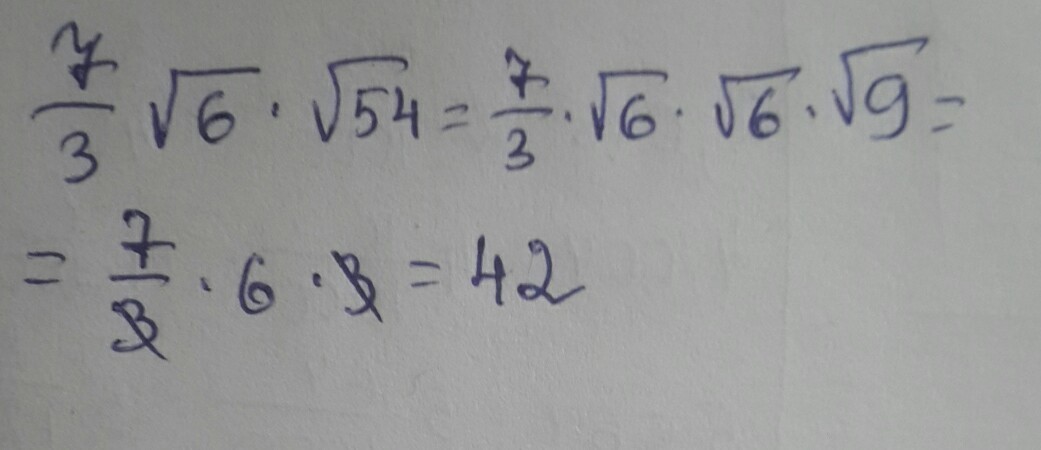 7/3 √6 · √54 = 7/3 · √6 · √6 · √9 =
= 7/3 · 6 · 3 = 42